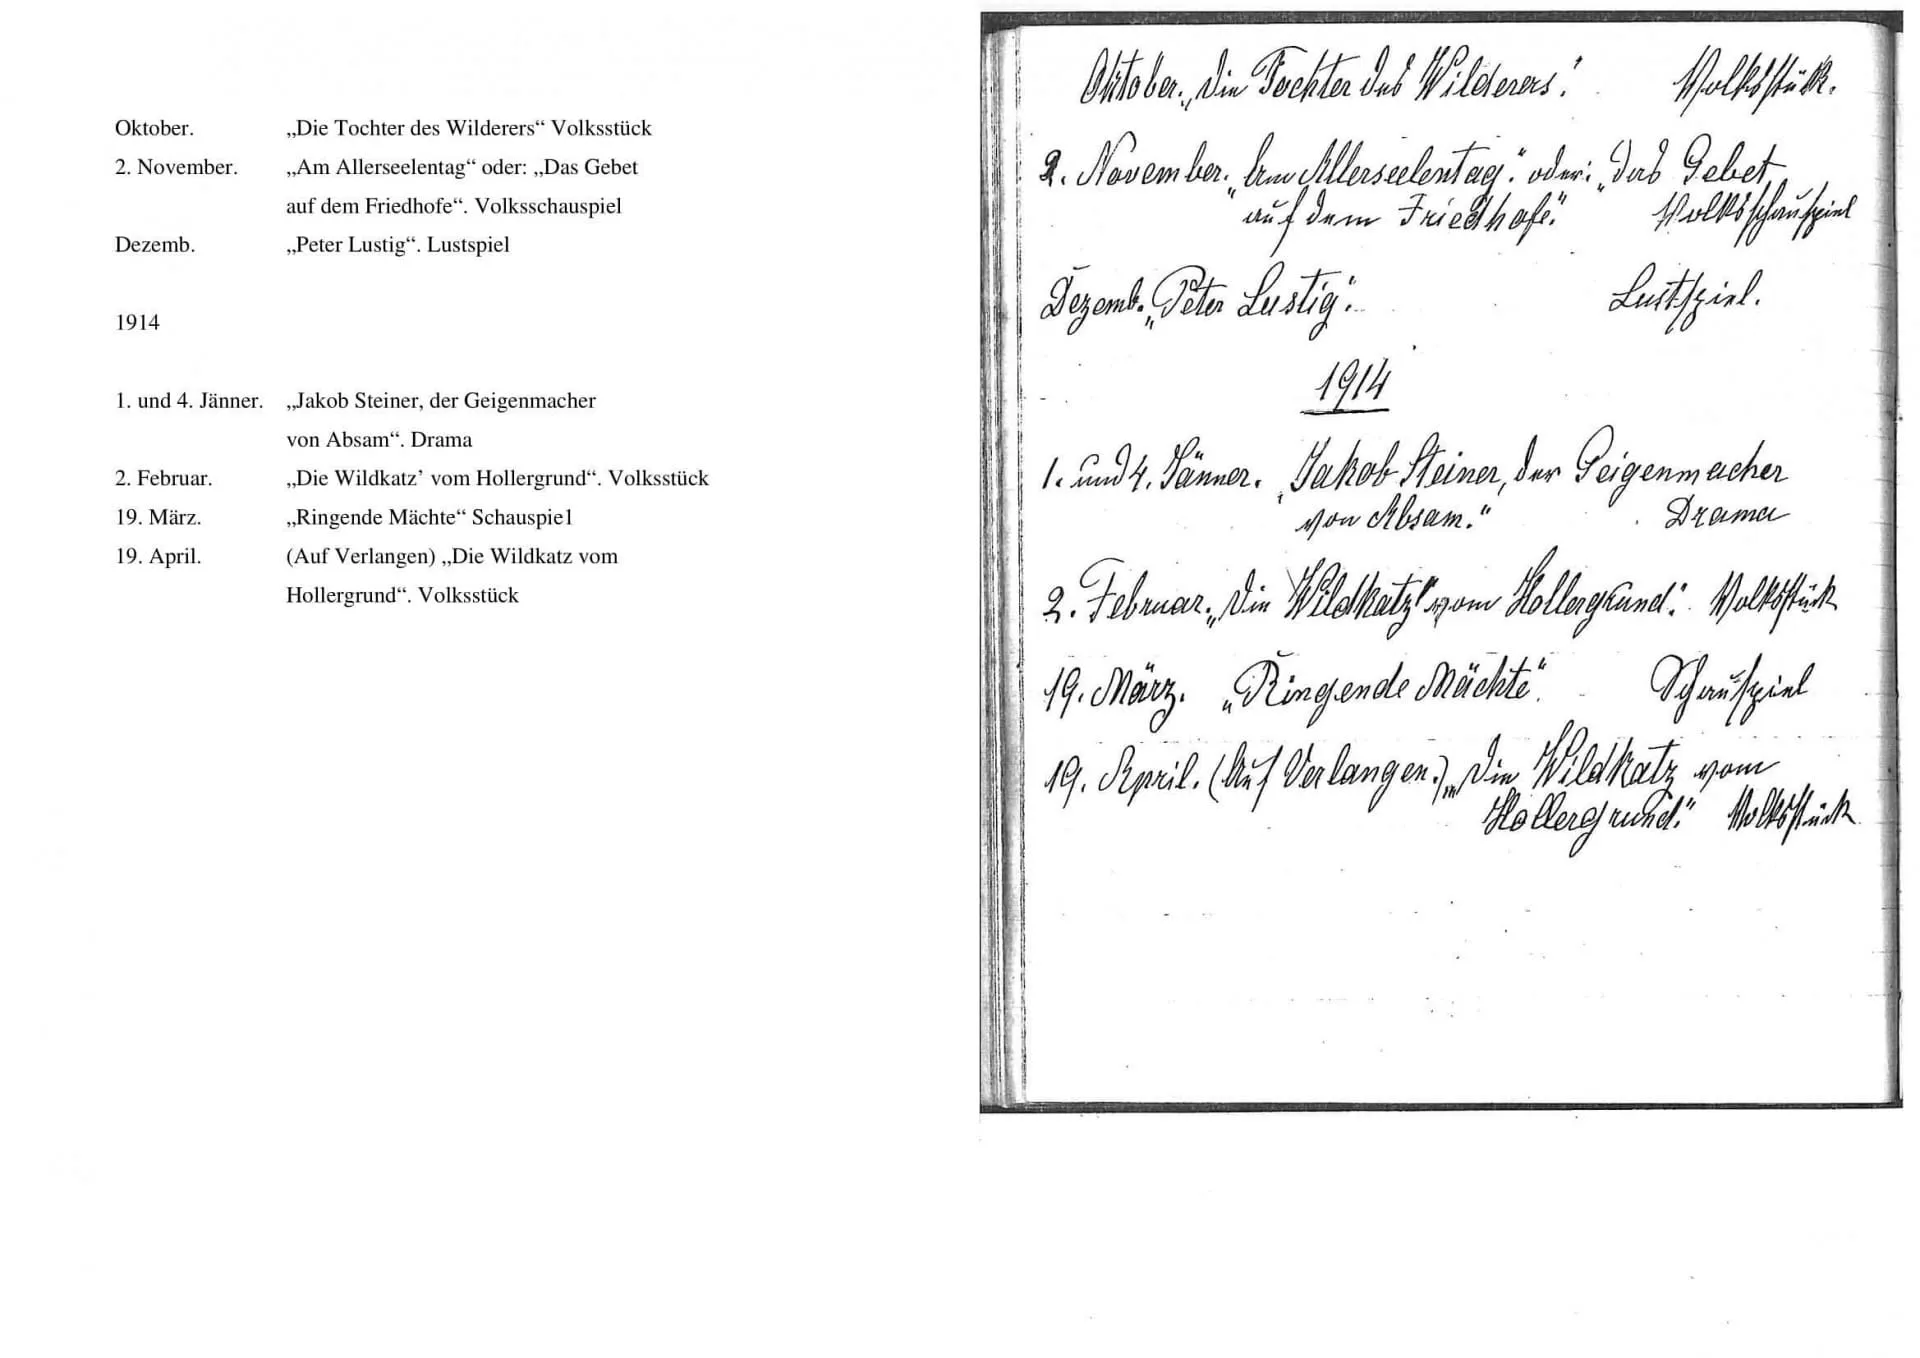 Oktober. „Die Tochter des Wilderers“ Volksstück
2. November. „Am Allerseelentag“ oder: „Das Gebet
auf dem Friedhofe“. Volksschauspiel
Dezemb. „Peter Lustig“. Lustspiel
1914
1. und 4. Jänner. „Jakob Steiner, der Geigenmacher
von Absam“. Drama
2. Februar. „Die Wildkatz’ vom Hollergrund“. Volksstück
19. März. „Ringende Mächte“ Schauspiel
19. April. (Auf Verlangen) „Die Wildkatz vom
Hollergrund“. Volksstück
Oktober. „Die Tochter des Wilderers“. Volksstück.
2. November. „Am Allerseelentag“. oder: „Das Gebet
auf dem Friedhofe.“ Volksschauspiel
Dezemb. „Peter Lustig“. Lustspiel.
1914
1. und 4. Jänner. „Jakob Steiner, der Geigenmacher
von Absam.“ Drama
2. Februar. „Die Wildkatz’ vom Hollergrund“. Volksstück
19. März. „Ringende Mächte“. Schauspiel
19. April. (Auf Verlangen.) „Die Wildkatz vom
Hollergrund.“ Volksstück